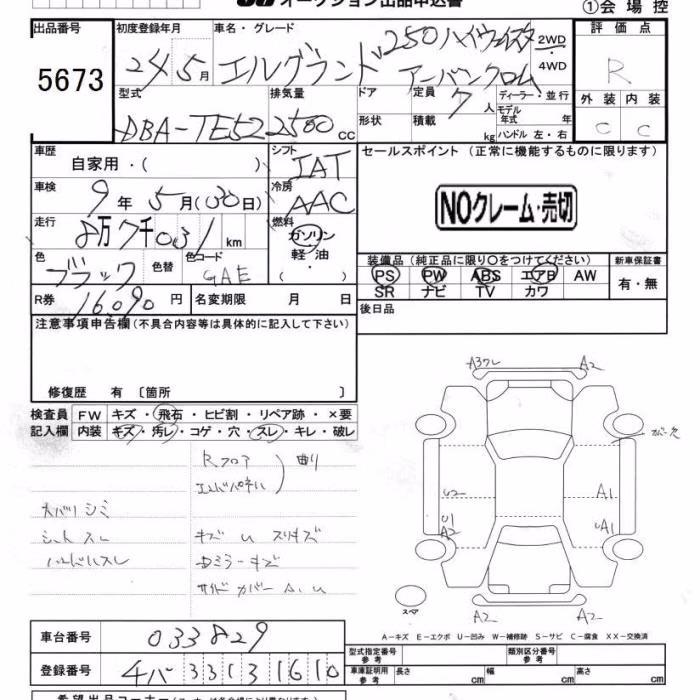 オークション出品申込書
①会場控
出品番号 5673
初度登録年月 24年5月
車名・グレード エルグランド 250ハイウェイスター アーバンクロム
2WD・4WD
評価点 R
外装 C 内装 C
型式 DBA-TE52
排気量 2500cc
ドア 形状
定員 7人
積載 kg
ディーラー・並行
モデル年式 年式
ハンドル 左・右
車歴 自家用・( )
シフト IAT
車検 9年5月(30日)
冷房 AAC
走行 8万7千031km
燃料 ガソリン・軽油・( )
色 ブラック 色替 色コード GAE
R券 16,090円 名変期限 月 日
セールスポイント (正常に機能するものに限ります)
NOクレーム・売切
装備品 (純正品に限り○をつけてください)
PS PW ABS エアB AW
SR ナビ TV カワ
新車保証書 有・無
後日品
注意事項申告欄 (不具合内容等は具体的に記入して下さい)
修復歴 有〔箇所 〕
検査員記入欄
FW キズ・飛石・ヒビ割・リペア跡・×要
内装 キズ・汚レ・コゲ・穴・スレ・キレ・破レ
Rフロア
エンドパネル 曲り
天バリシミ
シートスレ キズ U スリキズ
ハンドルスレ Dミラーキズ
サイドカバー A.U
A3ワレ A2
U2 A1
U1 A2 UA1
スペア
A2 A2
A－キズ E－エクボ U－凹み W－補修跡 S－サビ C－腐食 XX－交換済
車台番号 033829
登録番号
型式指定番号 参考
類別区分番号 参考
車庫証明用 参考 長さ cm 幅 cm 高さ cm
希望出品コーナー